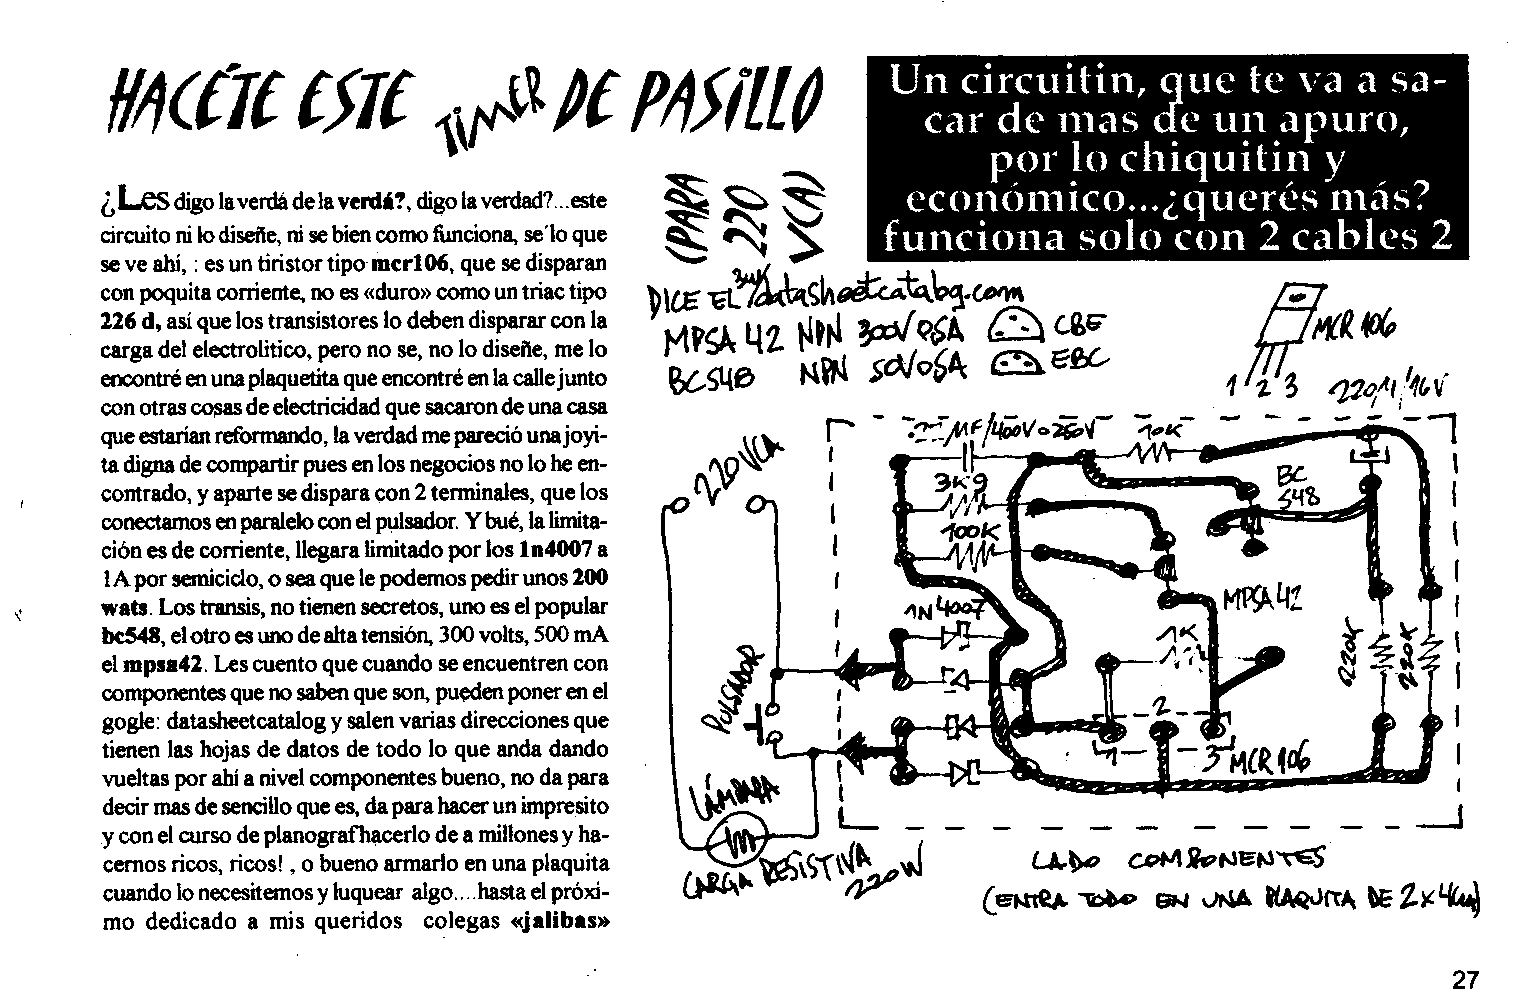 HACÉTE ESTE TIMER DE PASILLO
(PARA
220
VCA)
Un circuitin, que te va a sa-
car de mas de un apuro,
por lo chiquitin y
económico...¿querés más?
funciona solo con 2 cables 2
¿Les digo la verdá de la verdá?, digo la verdad?...este
circuito ni lo diseñe, ni se bien como funciona, se´lo que
se ve ahí, : es un tiristor tipo mcr106, que se disparan
con poquita corriente, no es «duro» como un triac tipo
226 d, así que los transistores lo deben disparar con la
carga del electrolitico, pero no se, no lo diseñe, me lo
encontré en una plaquetita que encontré en la calle junto
con otras cosas de electricidad que sacaron de una casa
que estarían reformando, la verdad me pareció una joyi-
ta digna de compartir pues en los negocios no lo he en-
contrado, y aparte se dispara con 2 terminales, que los
conectamos en paralelo con el pulsador. Y bué, la limita-
ción es de corriente, llegara limitado por los 1n4007 a
1A por semiciclo, o sea que le podemos pedir unos 200
wats. Los transis, no tienen secretos, uno es el popular
bc548, el otro es uno de alta tensión, 300 volts, 500 mA
el mpsa42. Les cuento que cuando se encuentren con
componentes que no saben que son, pueden poner en el
gogle: datasheetcatalog y salen varias direcciones que
tienen las hojas de datos de todo lo que anda dando
vueltas por ahí a nivel componentes bueno, no da para
decir mas de sencillo que es, da para hacer un impresito
y con el curso de planograf hacerlo de a millones y ha-
cernos ricos, ricos! , o bueno armarlo en una plaquita
cuando lo necesitemos y luquear algo....hasta el próxi-
mo dedicado a mis queridos colegas «jalibas»
DICE EL www/datasheetcatalog.com
MPSA 42 NPN 300V 0,5A CBE
BC548 NPN 50V 0,5A EBC
MCR 106
1 2 3
220µ/16V
MF/400V o 250V
10K
3K9
BC
548
100K
220VCA
1N4007
MPSA 42
1K
220K
220K
PULSADOR
1
2
3
MCR 106
LÁMPARA
CARGA RESISTIVA
220W
LADO COMPONENTES
(ENTRA TODO EN UNA PLAQUITA DE 2x4cm)
27